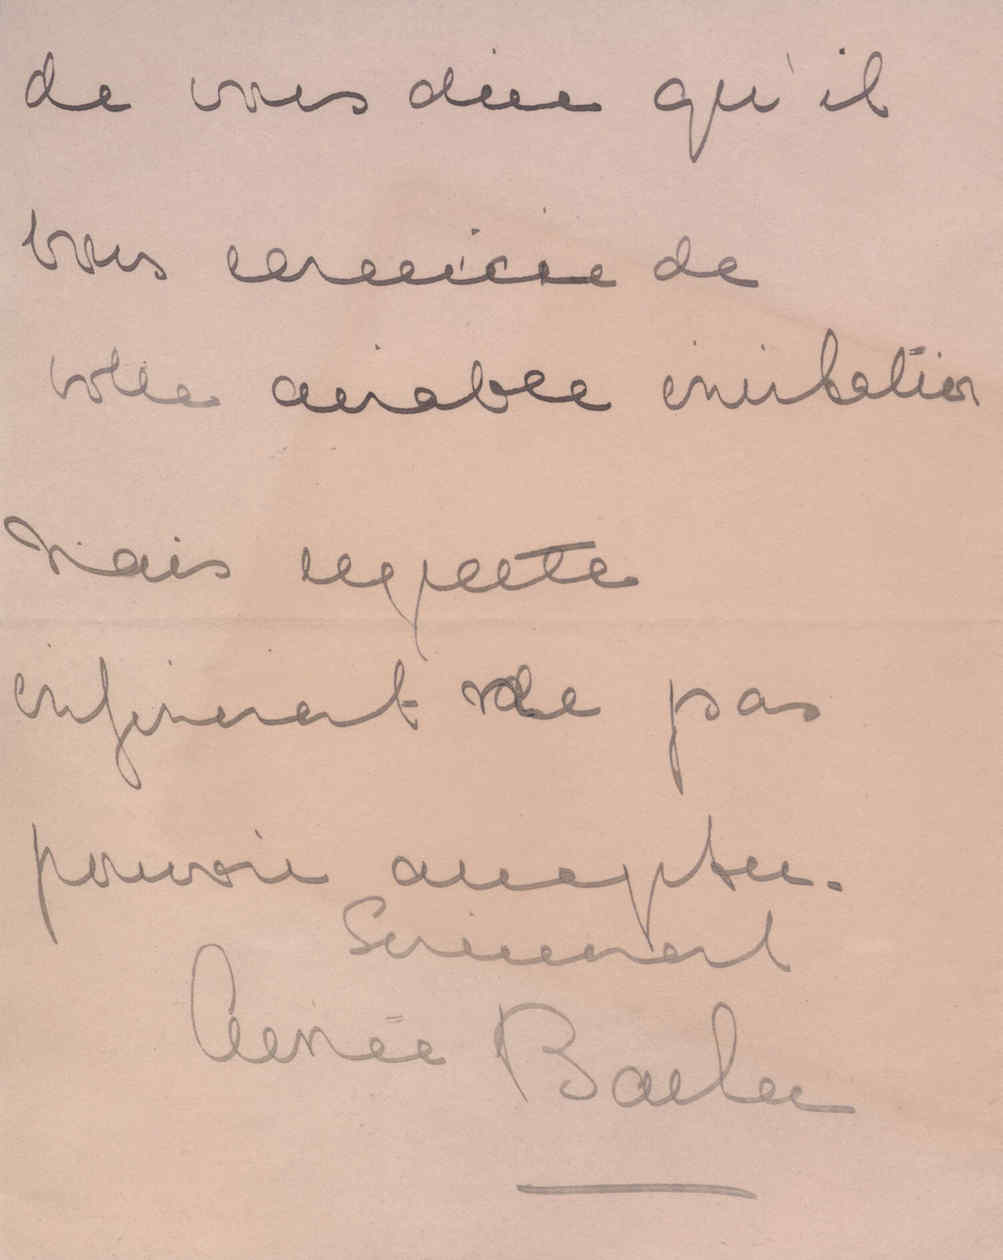 de vous dire qu'il
vous remercie de
votre aimable invitation
Mais regrette
infiniment de pas
pouvoir accepter.
Sincèrement
Aimée